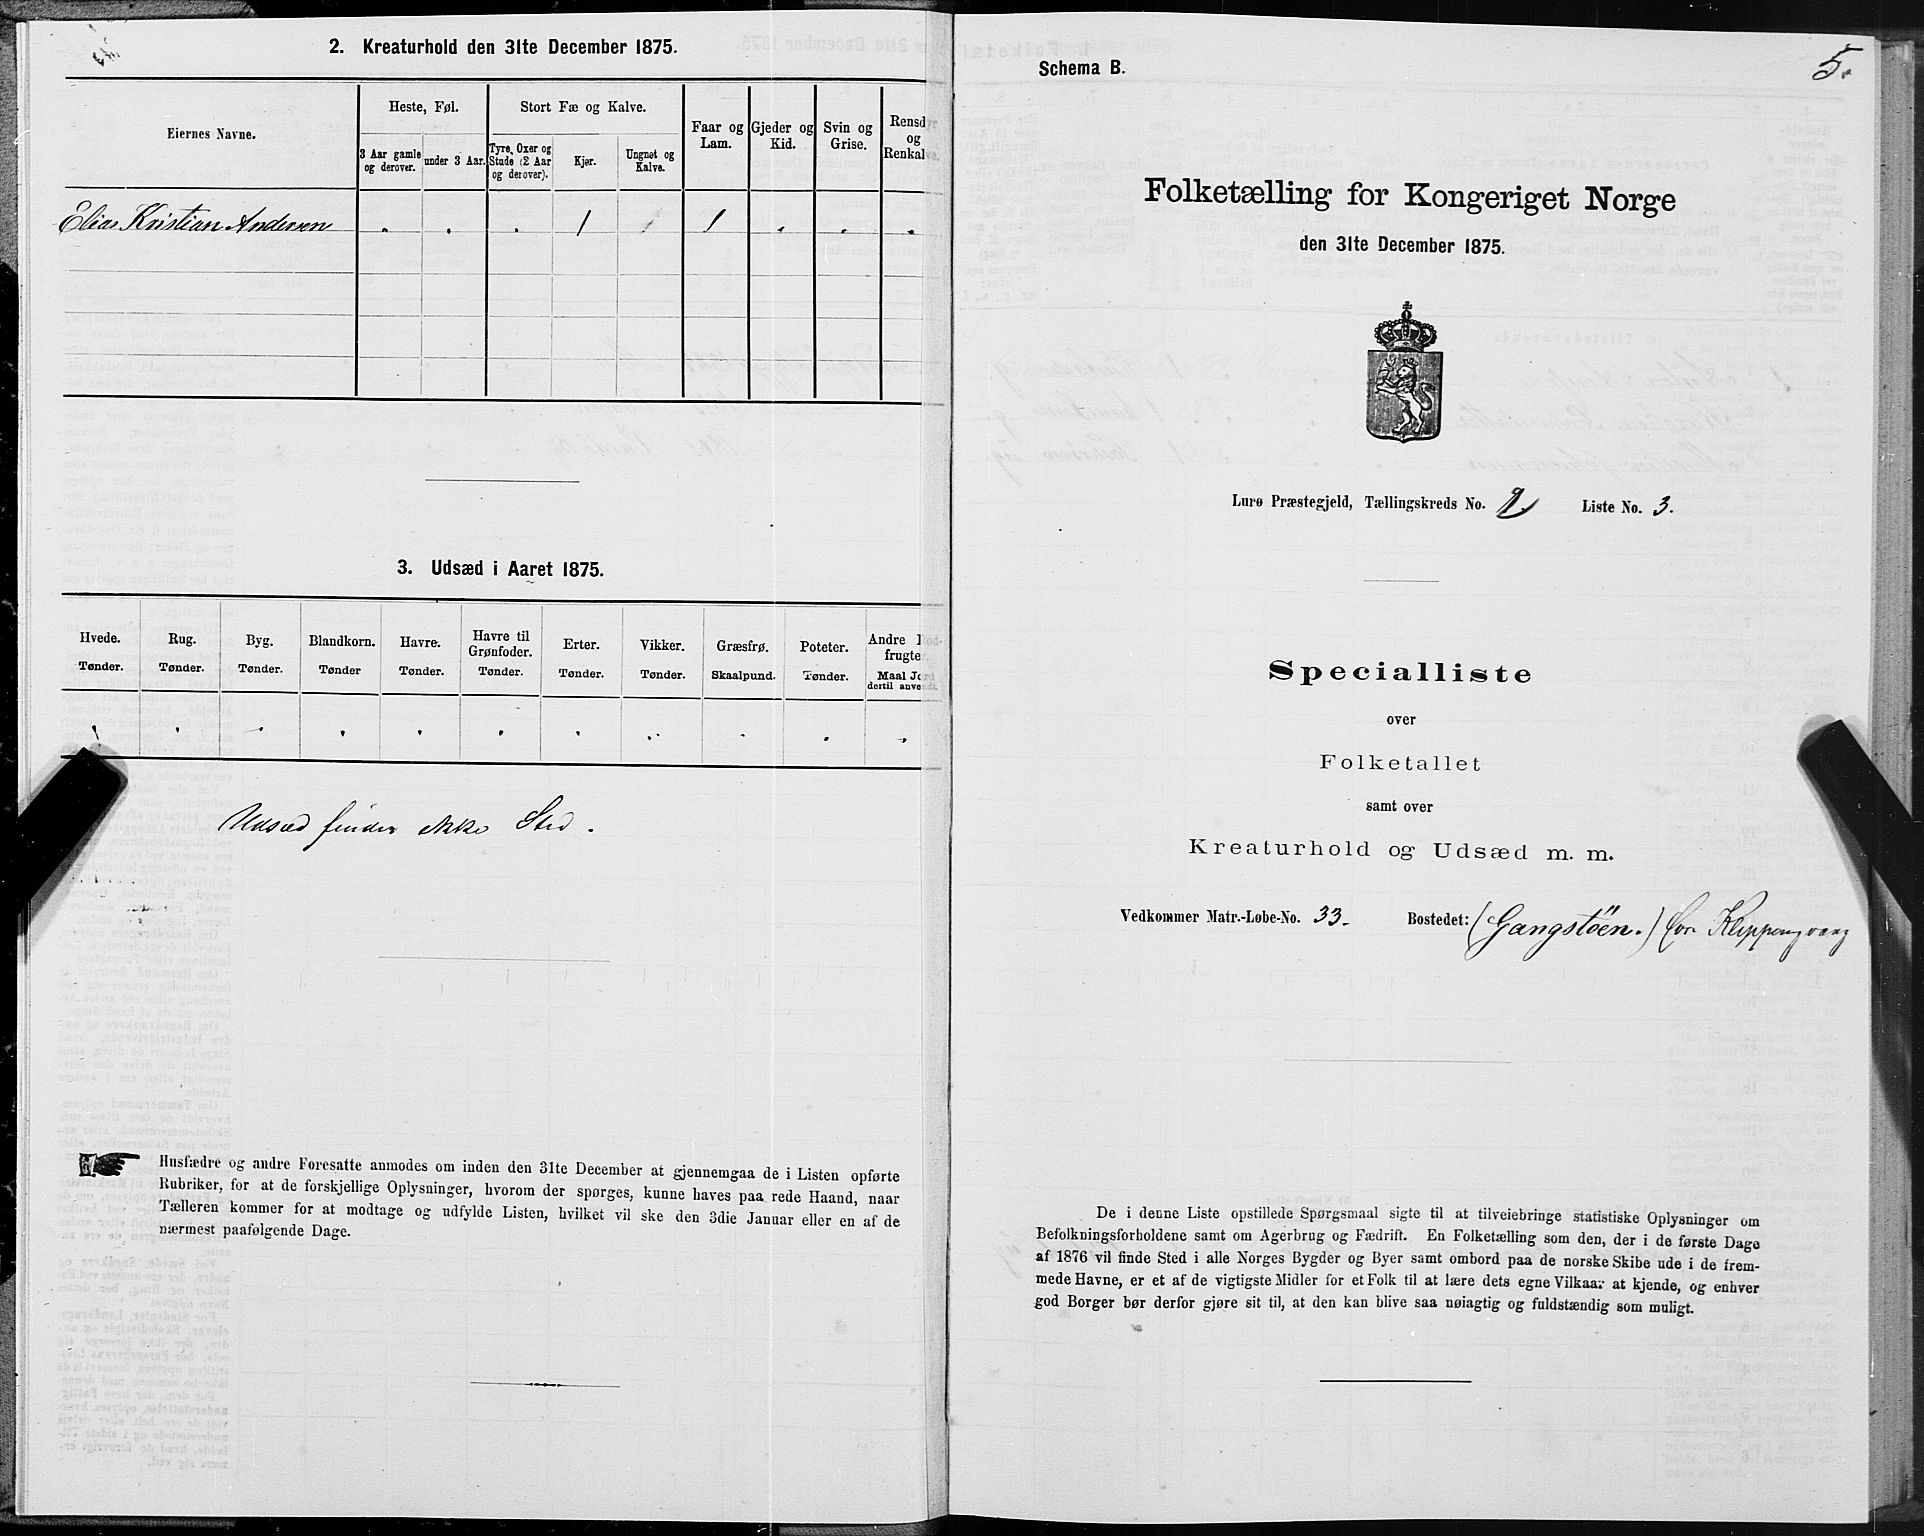 2. Kreaturhold den 31te December 1875.
Eiernes Navne.
Heste, Føl.
3 Aar gamle og derover.
under 3 Aar.
Stort Fæ og Kalve.
Tyre, Oxer og Stude (2 Aar og derover).
Kjør.
Ungnøt og Kalve.
Faar og Lam.
Gjeder og Kid.
Svin og Grise.
Rensdyr og Renkalve.
Elias Kristian Andersen . . . 1 1 . . .
3. Udsæd i Aaret 1875.
Hvede. Rug. Byg. Blandkorn. Havre. Havre til Grønfoder. Erter. Vikker. Græsfrø. Poteter. Andre Rodfrugter.
Tønder. Tønder. Tønder. Tønder Tønder. Tønder. Tønder. Tønder. Skaalpund. Tønder. Maal Jord dertil anvendt.
Udsæd finder ikke Sted.
Husfædre og andre Foresatte anmodes om inden den 31te December at gjennemgaa de i Listen opførte
Rubriker, for at de forskjellige Oplysninger, hvorom der spørges, kunne haves paa rede Haand, naar
Tælleren kommer for at modtage og udfylde Listen, hvilket vil ske den 3die Januar eller en af de
nærmest paafølgende Dage.
5.
Schema B.
Folketælling for Kongeriget Norge
den 31te December 1875.
Lurø Præstegjeld, Tællingskreds No. Liste No. 3.
Specialliste
over
Folketallet
samt over
Kreaturhold og Udsæd m. m.
Vedkommer Matr.-Løbe-No. 33. Bostedet: (Gangstöen.)
De i denne Liste opstillede Spørgsmaal sigte til at tilveiebringe statistiske Oplysninger om
Befolkningsforholdene samt om Agerbrug og Fædrift. En Folketælling som den, der i de første Dage
af 1876 vil finde Sted i alle Norges Bygder og Byer samt ombord paa de norske Skibe ude i de frem-
mede Havne, er et af de vigtigste Midler for et Folk til at lære dets egne Vilkaar at kjende, og enhver
god Borger bør derfor gjøre sit til, at den kan blive saa nøiagtig og fuldstændig som muligt.